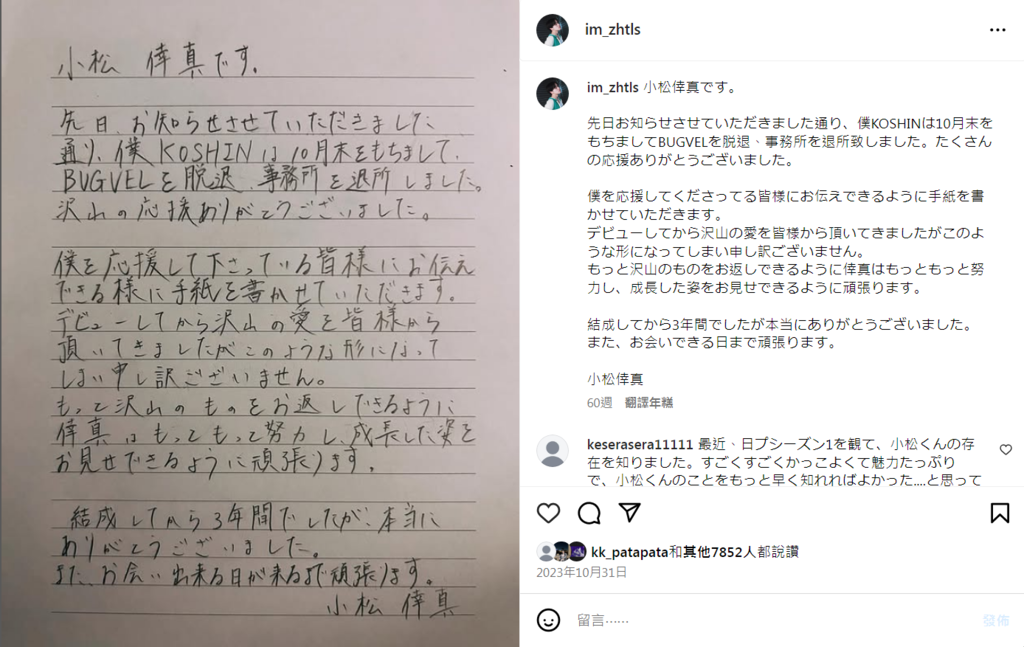 小松 倖真です。
先日、お知らせさせていただきました
通り、僕KOSHINは10月末をもちまして、
BUGVELを脱退、事務所を退所しました。
沢山の応援ありがとうございました。
僕を応援して下さっている皆様にお伝え
できる様に手紙を書かせていただきます。
デビューしてから沢山の愛を皆様から
頂いてきましたがこのような形になって
しまい申し訳ございません。
もっと沢山のものをお返しできるように
倖真はもっともっと努力し、成長した姿を
お見せできるように頑張ります。
結成してから3年間でしたが、本当に
ありがとうございました。
また、お会い出来る日が来るまで頑張ります。
小松 倖真
im_zhtls
im_zhtls 小松倖真です。
先日お知らせさせていただきました通り、僕KOSHINは10月末を
もちましてBUGVELを脱退、事務所を退所致しました。たくさん
の応援ありがとうございました。
僕を応援してくださってる皆様にお伝えできるように手紙を書
かせていただきます。
デビューしてから沢山の愛を皆様から頂いてきましたがこのよ
うな形になってしまい申し訳ございません。
もっと沢山のものをお返しできるように倖真はもっともっと努
力し、成長した姿をお見せできるように頑張ります。
結成してから3年間でしたが本当にありがとうございました。
また、お会いできる日まで頑張ります。
小松倖真
60週 翻譯年糕
keserasera11111 最近、日プシーズン1を観て、小松くんの存
在を知りました。すごくすごくかっこよくて魅力たっぷり
で、小松くんのことをもっと早く知れればよかった....と思って
kk_patapata和其他7852人都說讚
2023年10月31日
留言……
發佈